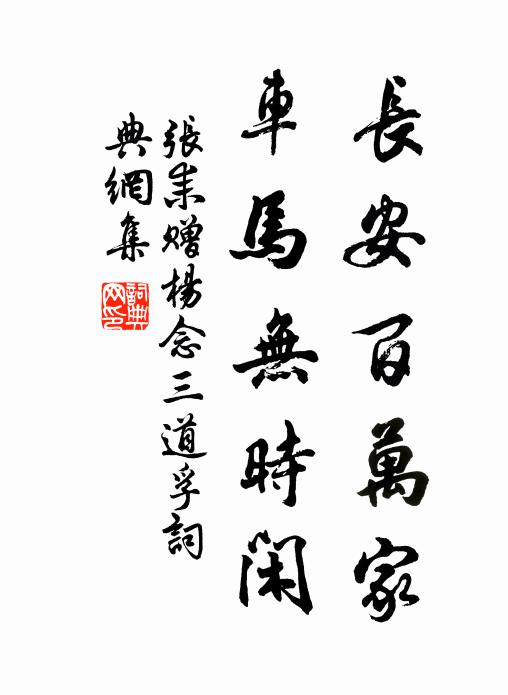 長安百萬家
車馬無時閑
張耒贈楊念三道孚詞
典網集
詞典網印